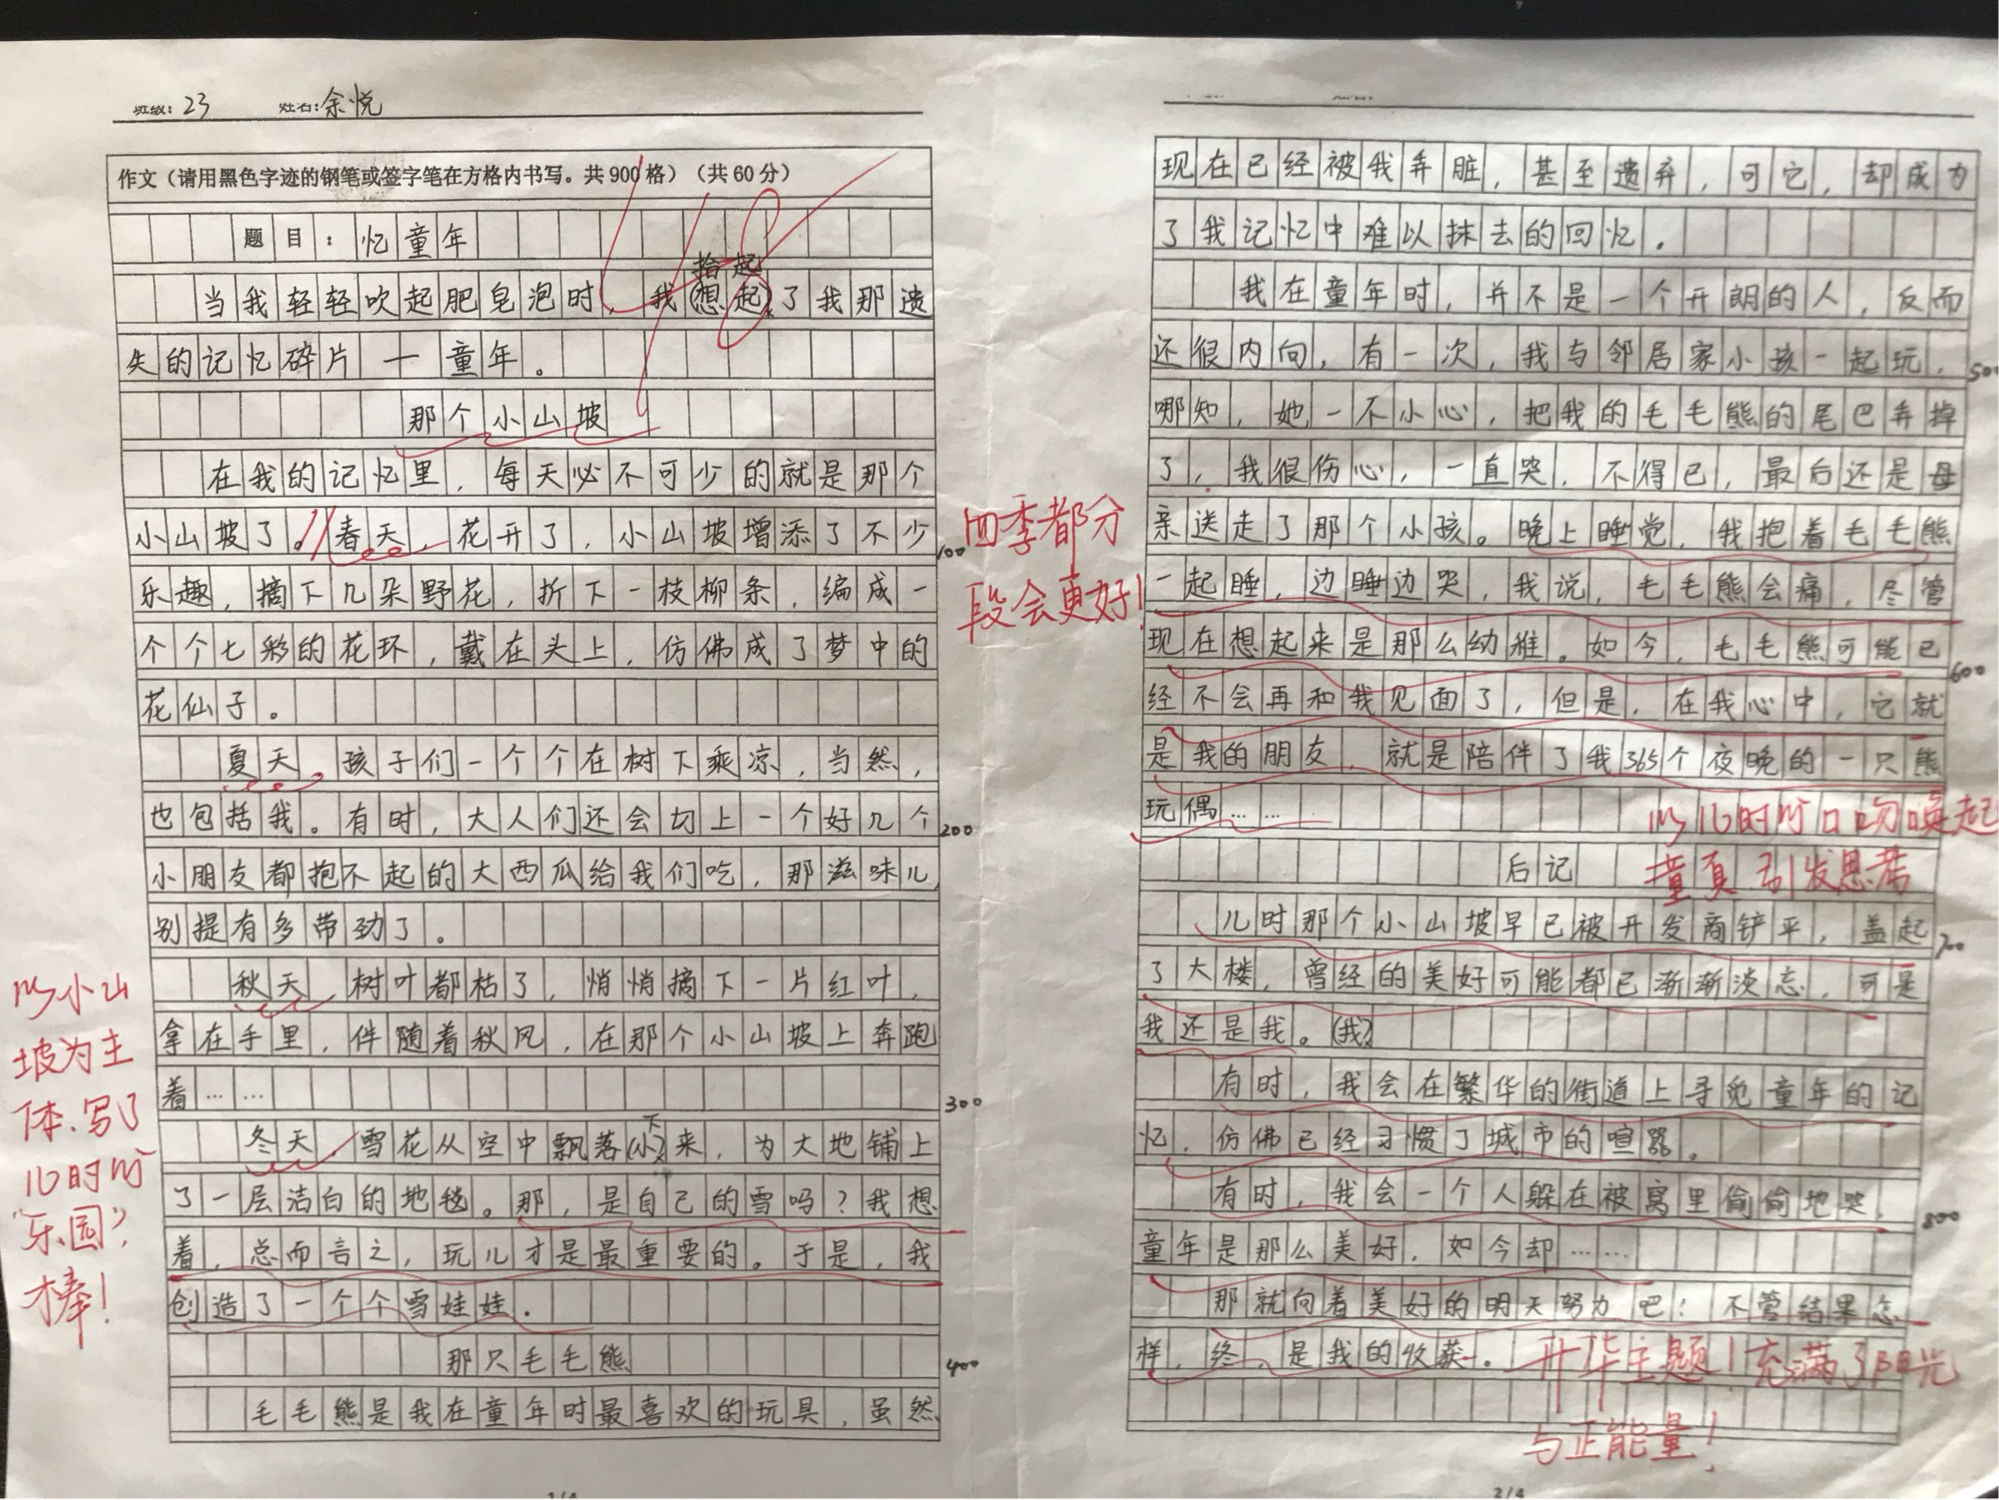 班级：23 姓名：余悦
作文（请用黑色字迹的钢笔或签字笔在方格内书写。共900格）（共60分）
48
题目：忆童年
拾起
当我轻轻吹起肥皂泡时，我（想起）了我那遗
失的记忆碎片——童年。
那个小山坡
在我的记忆里，每天必不可少的就是那个
小山坡了。//春天，花开了，小山坡增添了不少
100
乐趣，摘下几朵野花，折下一枝柳条，编成一
个个七彩的花环，戴在头上，仿佛成了梦中的
花仙子。
夏天，孩子们一个个在树下乘凉，当然，
也包括我。有时，大人们还会切上一个好几个
200
小朋友都抱不起的大西瓜给我们吃，那滋味儿，
别提有多带劲了。
秋天，树叶都枯了，悄悄摘下一片红叶，
拿在手里，伴随着秋风，在那个小山坡上奔跑
着……
300
冬天，雪花从空中飘落（小）下来，为大地铺上
了一层洁白的地毯。那，是自己的雪吗？我想
着，总而言之，玩儿才是最重要的。于是，我
创造了一个个雪娃娃。
那只毛毛熊
400
毛毛熊是我在童年时最喜欢的玩具，虽然
以小山
坡为主
体、写了
儿时的
“乐园”，
棒！
1/4
四季都分
段会更好！
姓名：
现在已经被我弄脏，甚至遗弃，可它，却成为
了我记忆中难以抹去的回忆。
我在童年时，并不是一个开朗的人，反而
还很内向，有一次，我与邻居家小孩一起玩，
500
哪知，她一不小心，把我的毛毛熊的尾巴弄掉
了，我很伤心，一直哭，不得已，最后还是母
亲送走了那个小孩。晚上睡觉，我抱着毛毛熊
一起睡，边睡边哭，我说，毛毛熊会痛，尽管
现在想起来是那么幼稚。如今，毛毛熊可能已
600
经不会再和我见面了，但是，在我心中，它就
是我的朋友，就是陪伴了我365个夜晚的一只熊
玩偶……
以儿时的口吻唤起
童真 引发思考
后记
儿时那个小山坡早已被开发商铲平，盖起
700
了大楼，曾经的美好可能都已渐渐淡忘，可是
我还是我。（我）
有时，我会在繁华的街道上寻觅童年的记
忆，仿佛已经习惯了城市的喧嚣。
有时，我会一个人躲在被窝里偷偷地哭，
800
童年是那么美好，如今却……
那就向着美好的明天努力吧！不管结果怎
样，终 是我的收获。
升华主题！充满了阳光
与正能量！
2/4